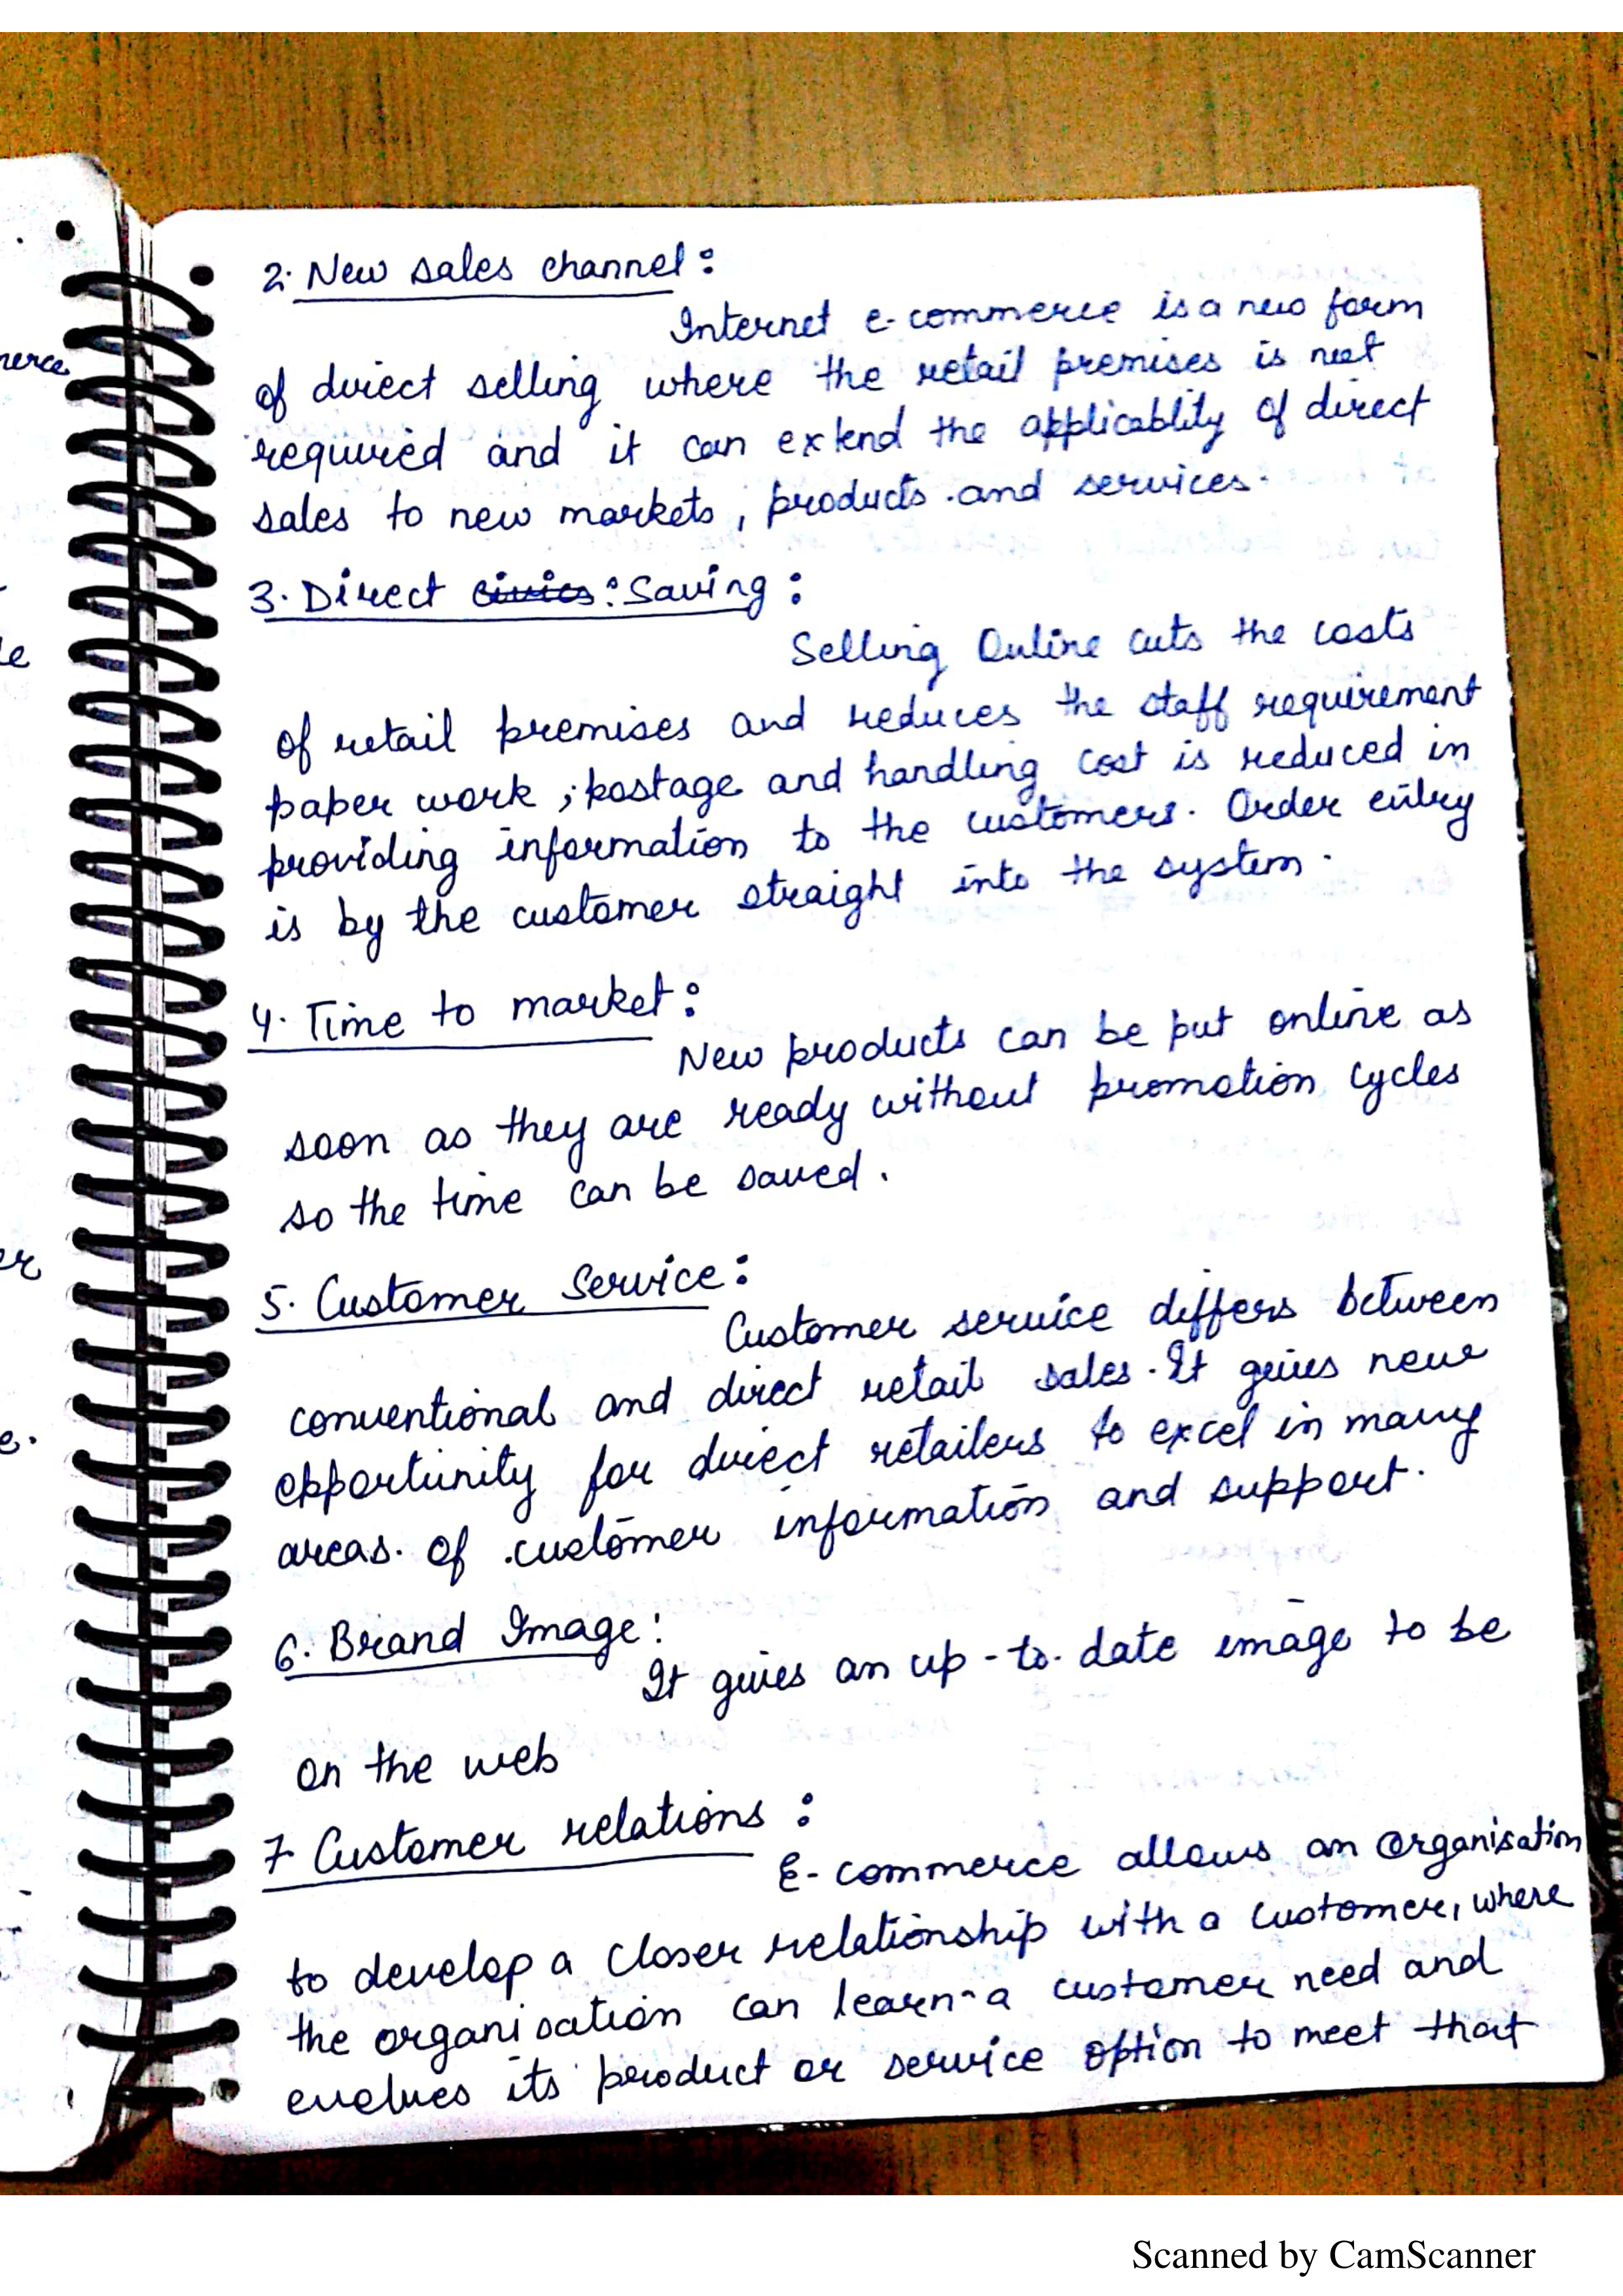 2. New sales channel:
Internet e-commerce is a new form
of direct selling where the retail premises is not
required and it can extend the applicablity of direct
sales to new markets, products and services.
3. Direct civics: Saving:
Selling Online cuts the costs
of retail premises and reduces the staff requirement
paper work ; postage and handling cost is reduced in
providing information to the customers. Order entry
is by the customer straight into the system.
4. Time to market:
New products can be put online as
soon as they are ready without promotion cycles
so the time can be saved.
5. Customer Service:
Customer service differs between
conventional and direct retail sales. It gives new
opportunity for direct retailers to excel in many
areas. of customer information and support.
6. Brand Image:
It gives an up-to-date image to be
on the web
7 Customer relations:
E-commerce allows an organisation
to develop a closer relationship with a customer, where
the organisation can learn-a customer need and
evolves its product or service option to meet that
Scanned by CamScanner